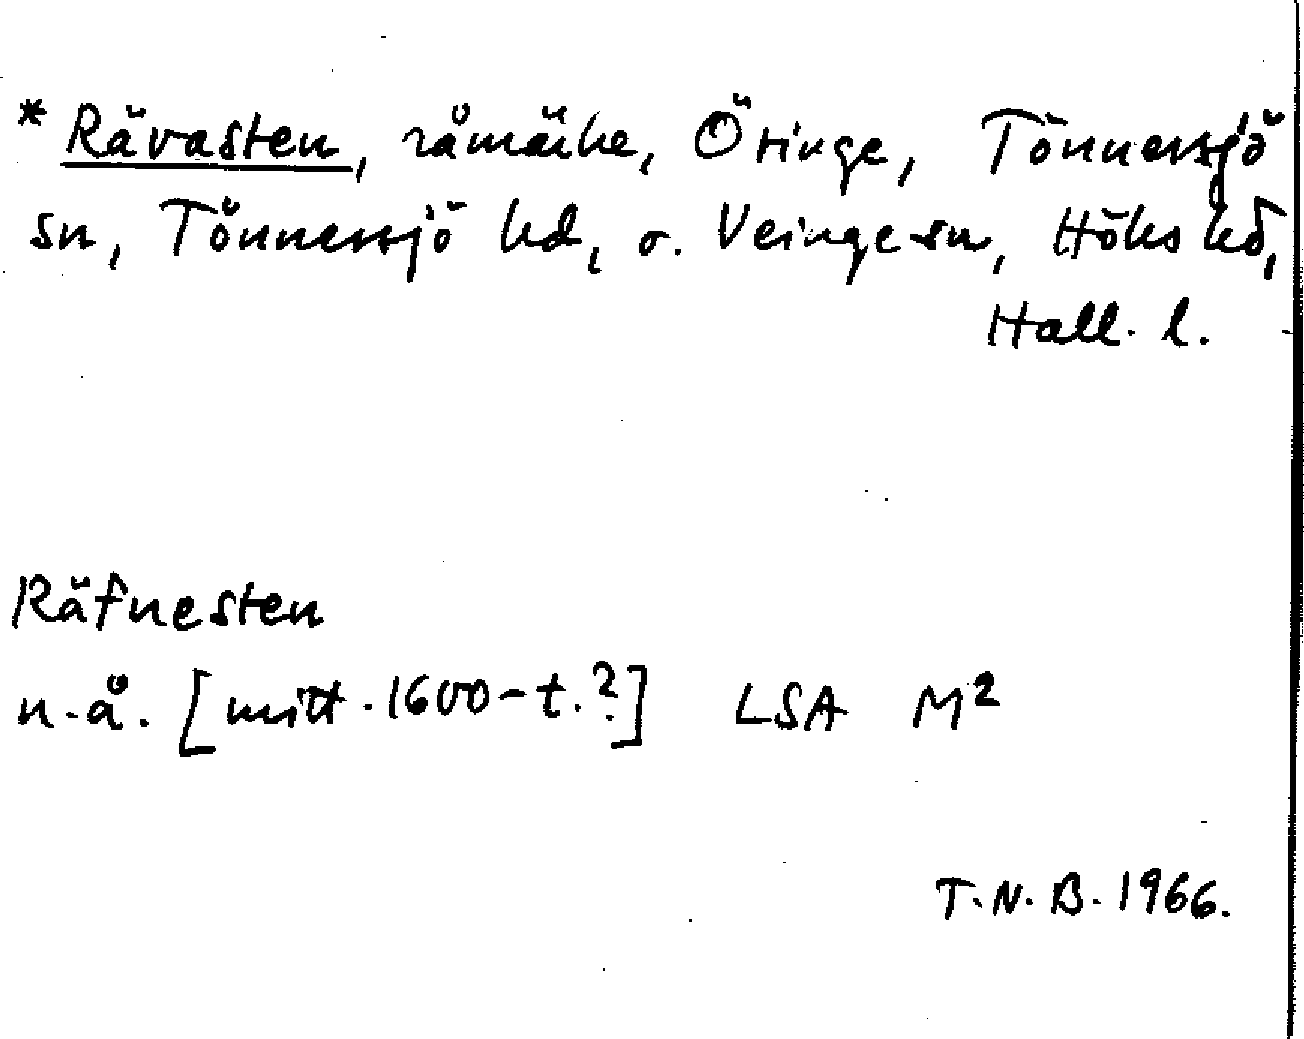 * Rävasten, råmärke, Öringe, Tönnersjö
sn, Tönnersjö hd, o. Veinge sn, Höks hd,
Hall. l.
Räfnesten
n.å. [mitt. 1600-t.?] LSA M²
T.N.B. 1966.